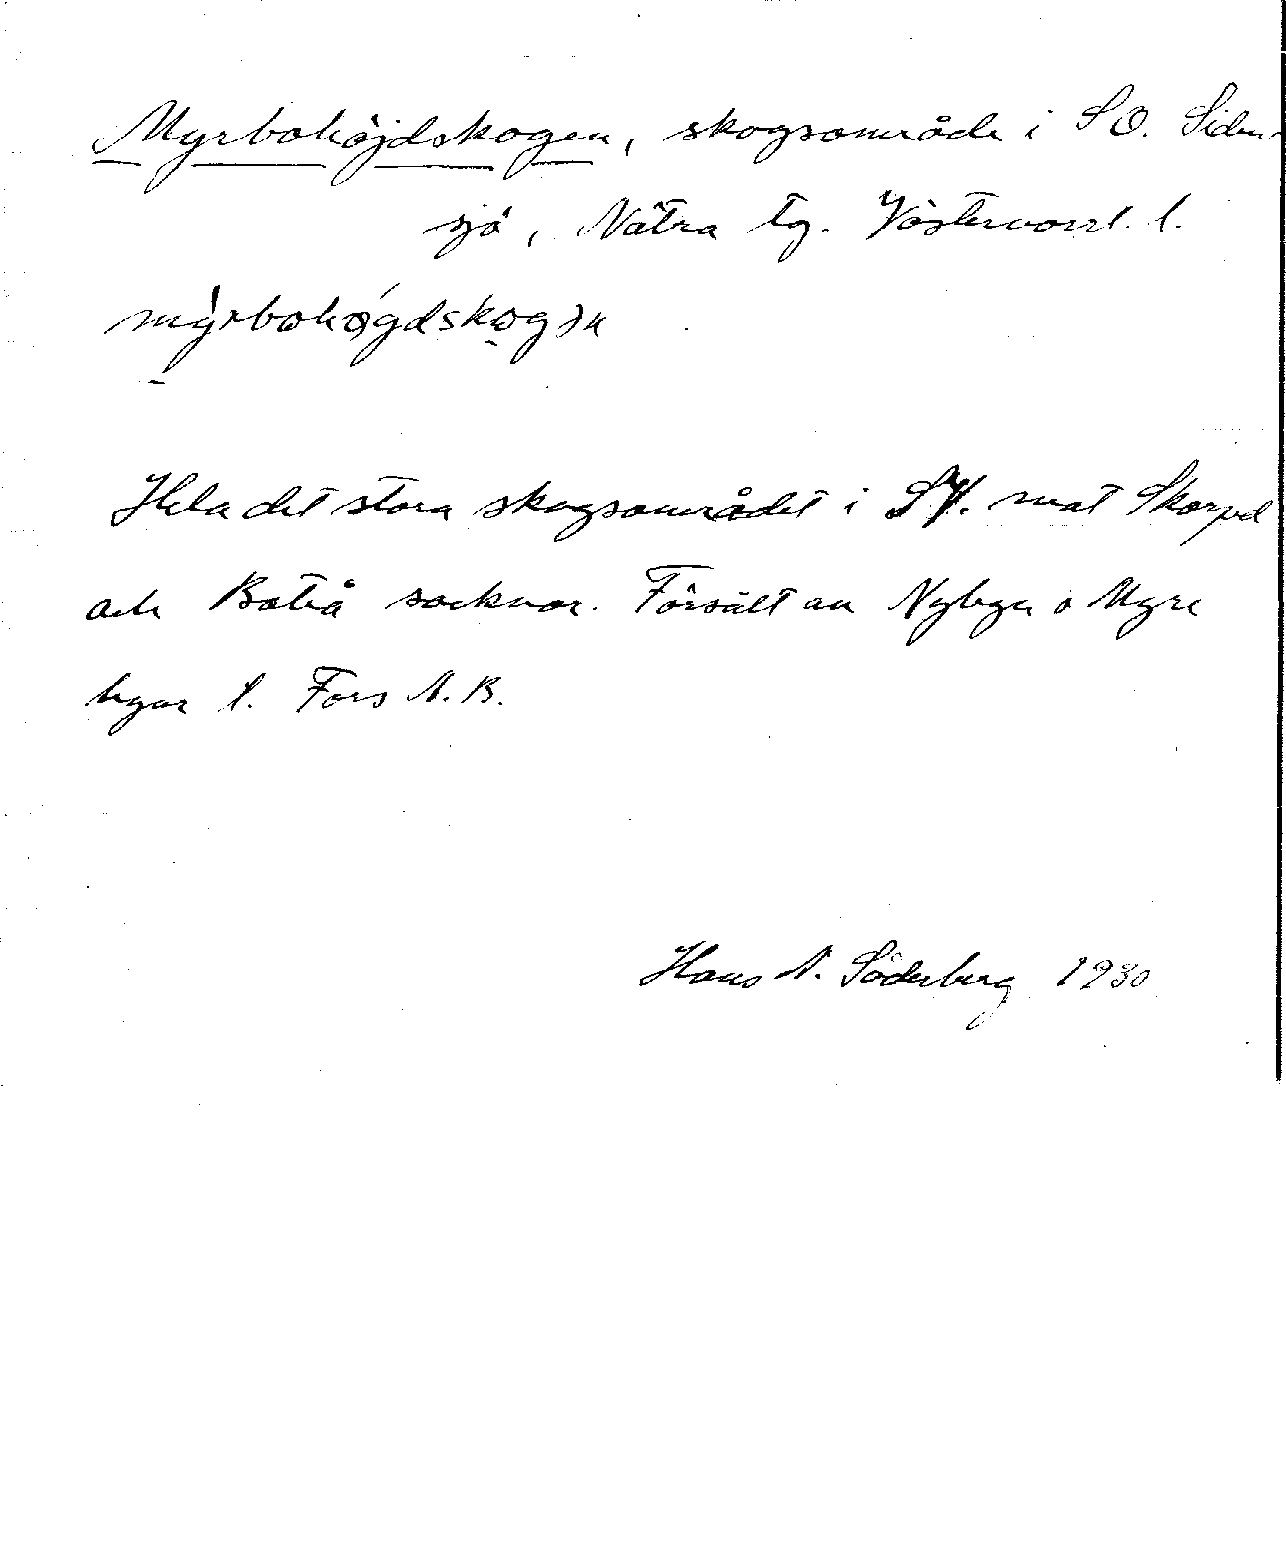 Myrbohöjdskogen, skogsområde i SO. Siden-
sjö, Nätra tg. Västernorrl. l.
Hela det stora skogsområdet i SV. mot Skorped
och Boteå socknar. Försålt av Nybyn o Myre
byar t. Fors A. B.
Hans N. Söderberg 1930